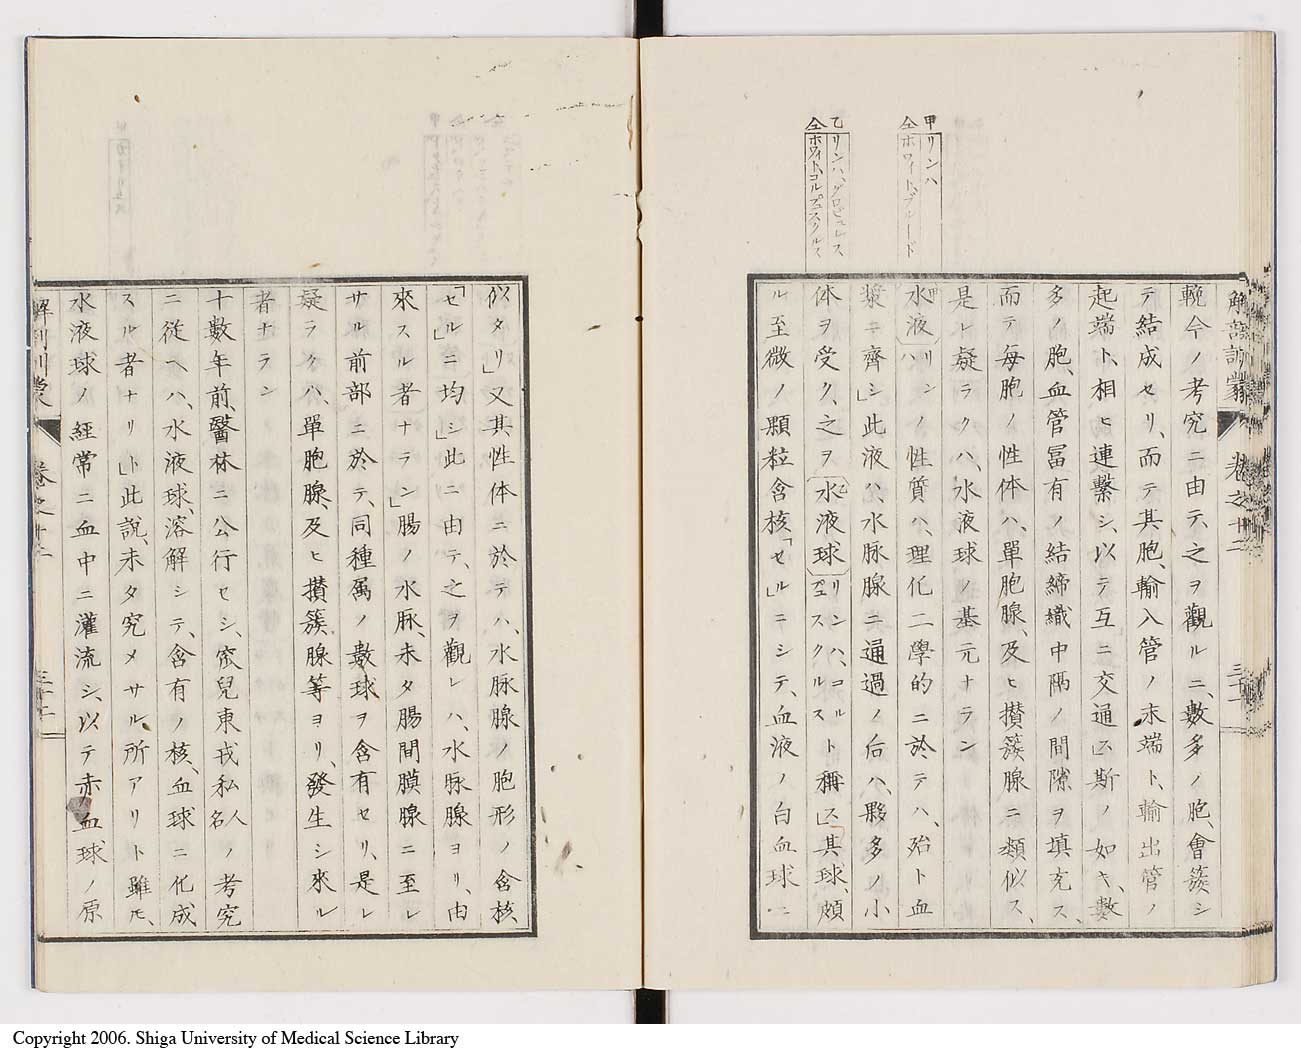 解剖訓蒙 卷之十二 三十一
甲 リンハ
仝 ホワイト、ブルード
乙 リンハ、グロビュレス
仝 ホワイト、コルプュスクルス
輓今ノ考究ニ由テ、之ヲ觀ルニ、數多ノ胞、會簇シ
テ結成セリ、而テ其胞、輸入管ノ末端ト、輸出管ノ
起端ト、相ヒ連繫シ、以テ互ニ交通ス」斯ノ如キ、數
多ノ胞、血管冨有ノ結締織中隔ノ間隙ヲ填充ス、
而テ毎胞ノ性体ハ、單胞腺、及ヒ攅簇腺ニ類似ス、
是レ疑ラクハ、水液球ノ基元ナラン
水液甲ハリンノ性質ハ、理化二學的ニ於テハ、殆ト血
漿ニ齊シ」此液ハ水脉腺ニ通過ノ后ハ、夥多ノ小
体ヲ受ク、之ヲ水乙液球リンハ、コルプュスクルスト稱ス」其球、頗
ル至微ノ顆粒含核「セル」ニシテ、血液ノ白血球ニ
似タリ」又其性体ニ於テハ、水脉腺ノ胞形ノ含核
「セル」ニ均シ」此ニ由テ、之ヲ觀レハ、水脉腺ヨリ、由
來スル者ナラン」腸ノ水脉、未タ腸間膜腺ニ至レ
サル前部ニ於テ、同種属ノ數球ヲ含有セリ、是レ
疑ラクハ、單胞腺、及ヒ攅簇腺等ヨリ、發生シ來ル
者ナラン
十數年前、醫林ニ公行セシ、宻兒東戎私人名ノ考究
ニ從ヘハ、水液球、溶解シテ、含有ノ核、血球ニ化成
スル者ナリ」ト此説、未タ究メサル所アリト雖モ、
水液球ノ經常ニ血中ニ灌流シ、以テ赤血球ノ原
解剖訓蒙 卷之十二 三十二
Copyright 2006. Shiga University of Medical Science Library